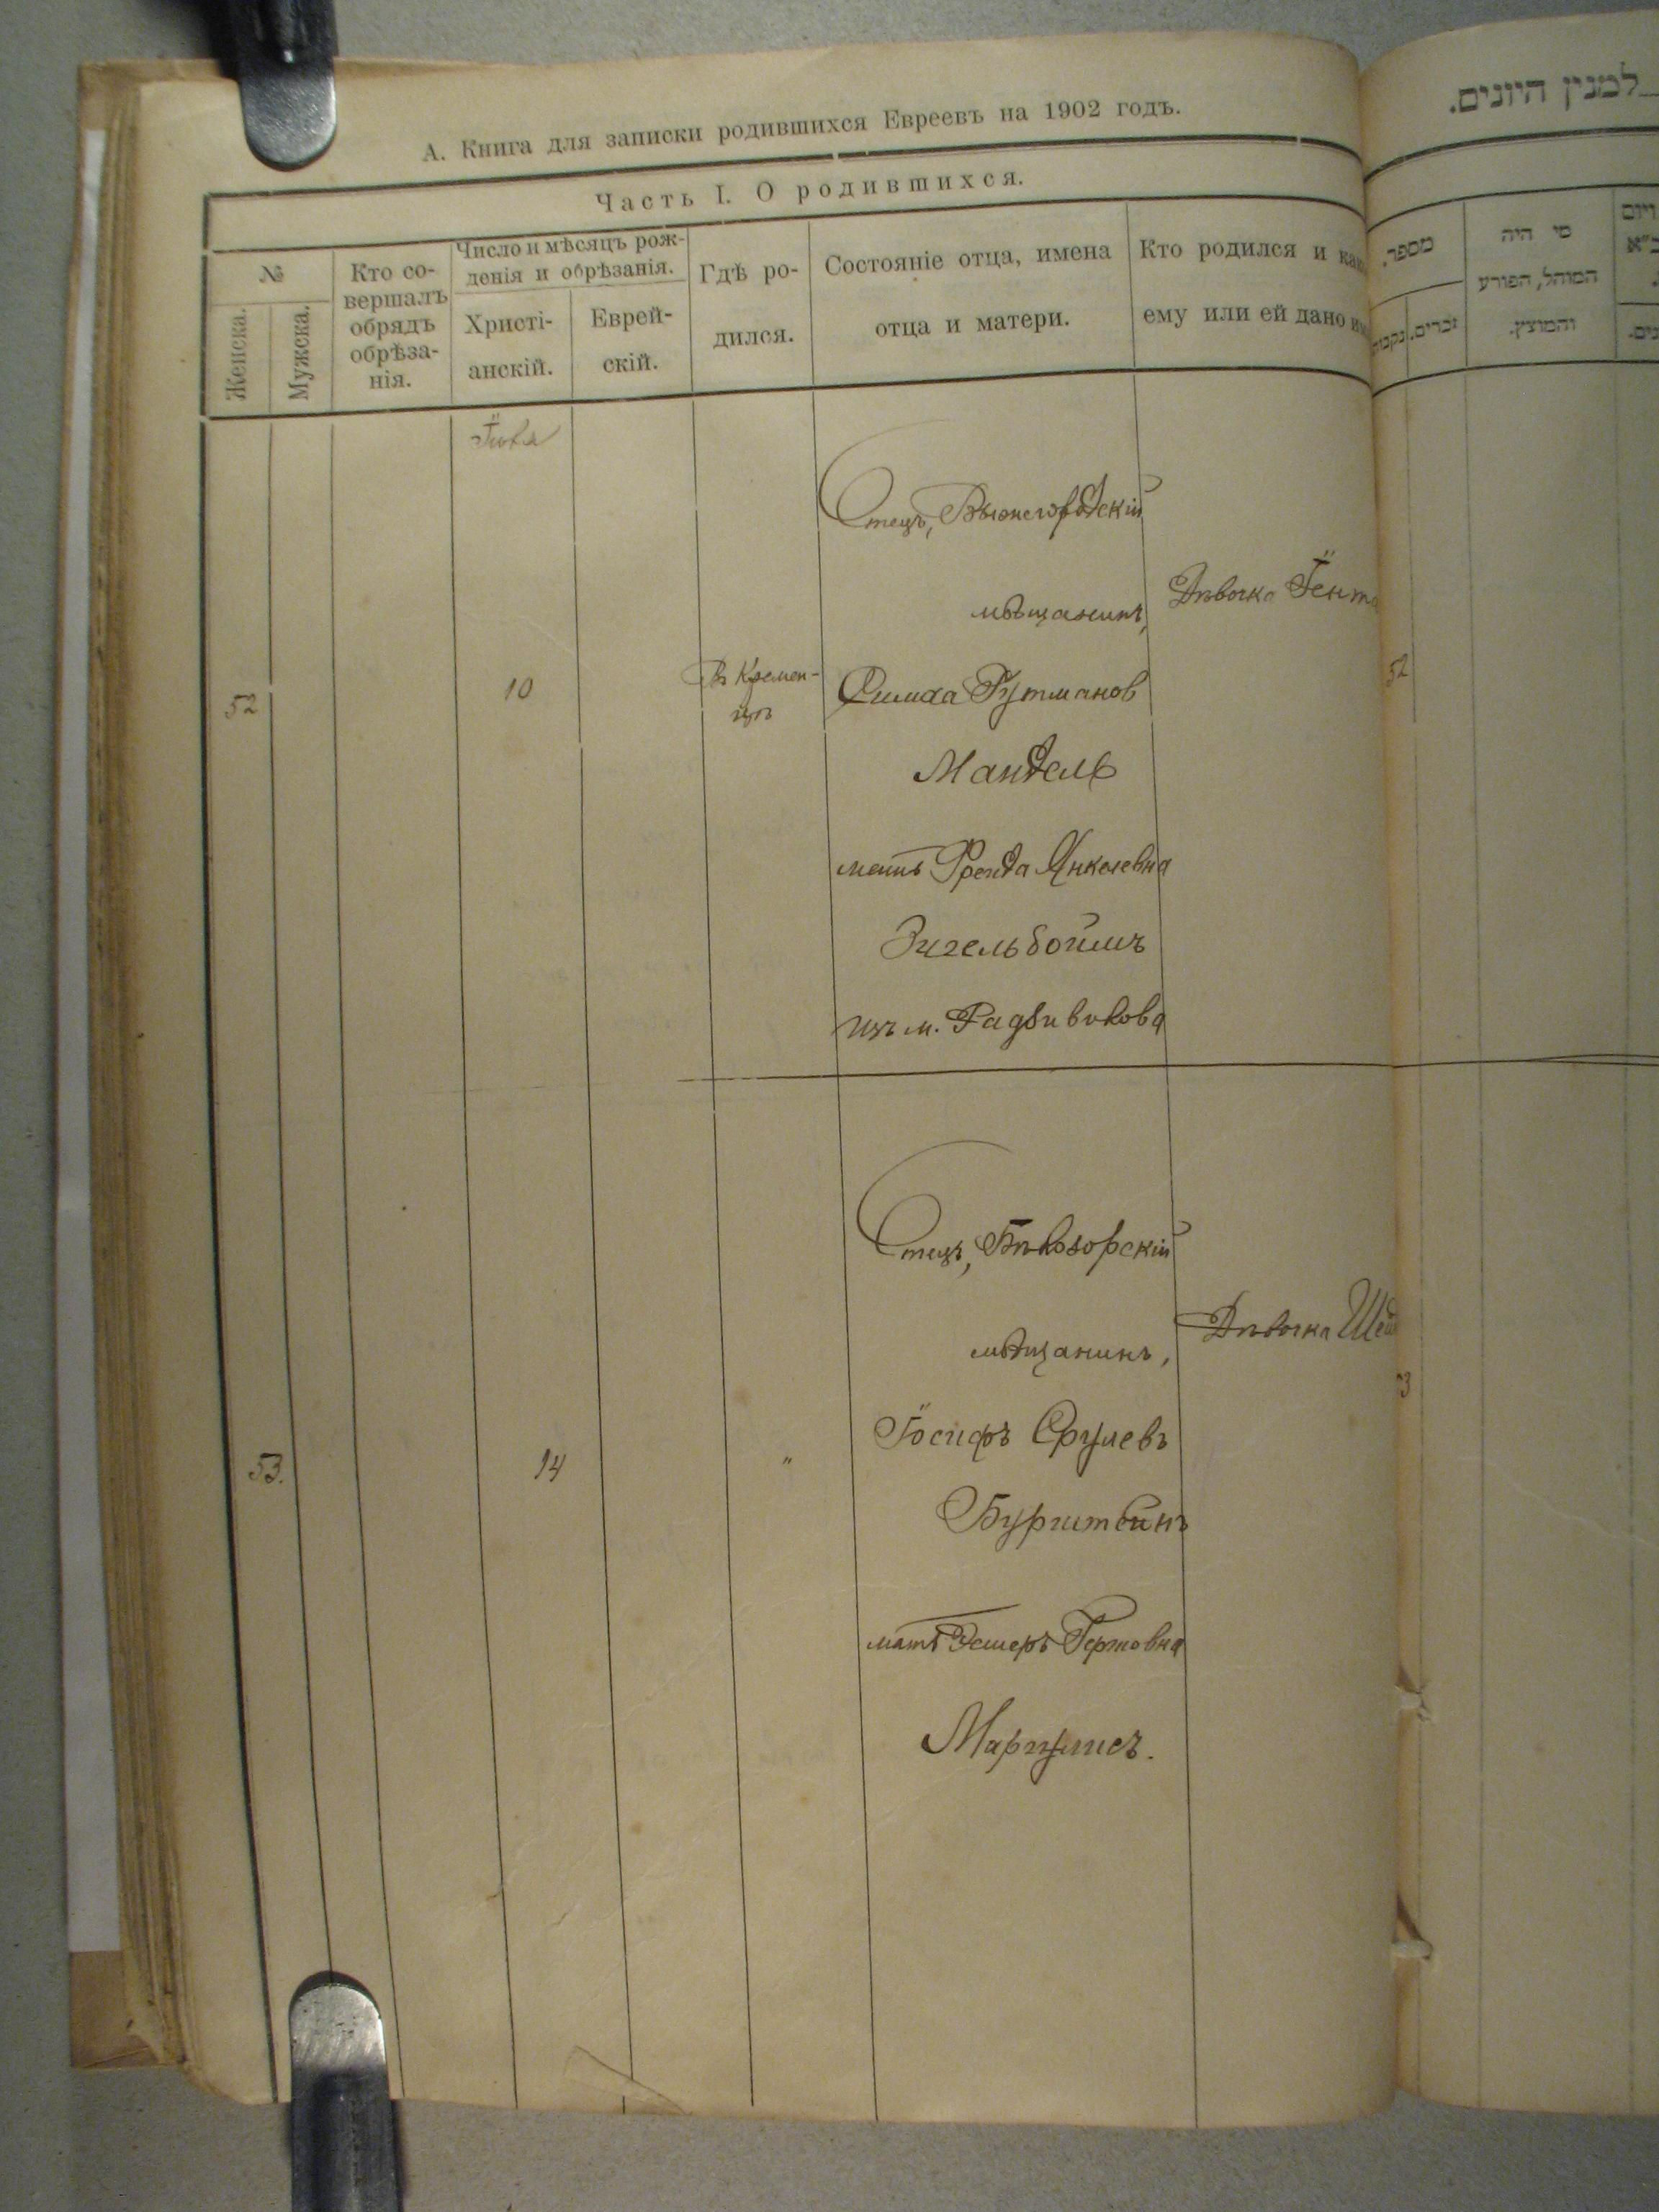 А. Книга для записки родившихся Евреевъ на 1902 годъ.
Часть I. О родившихся.
№
Женска.
Мужска.
Кто со-
вершалъ
обрядъ
обрѣза-
нія.
Число и мѣсяцъ рож-
денія и обрѣзанія.
Христі-
анскій.
Еврей-
скій.
Гдѣ ро-
дился.
Состояніе отца, имена
отца и матери.
Кто родился и
ему или ей дано
Іюля
52
10
Въ Кремен-
цѣ
Отецъ, Вышегородскій
мѣщанинъ,
Гутманов
Мандель
мать Фрейда Янкелевна
Зигельбоймъ
изъ м. Радзивилова
Дѣвочка
53.
14
"
Отецъ, Бѣлозорскій
мѣщанинъ,
Іосифъ Срулевъ
Бурштейнъ
мать Эстеръ
Маргулисъ.
Дѣвочка
למנין היונים.
מספר.
זכרים.
מי היה
המוהל, הפורע
והמוצץ.
52